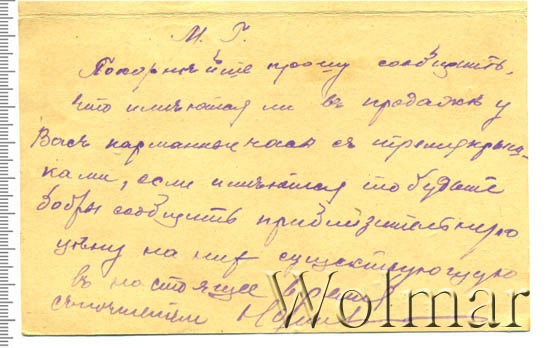 М. Г.
Покорнѣйше прошу сообщить,
что имѣются ли въ продажѣ у
Васъ карманные часы съ тремя крыш-
ками, если имѣются то будьте
добры сообщить приблизительную
цѣну на них существующую
въ настоящее время
съ почтением
Wolmar